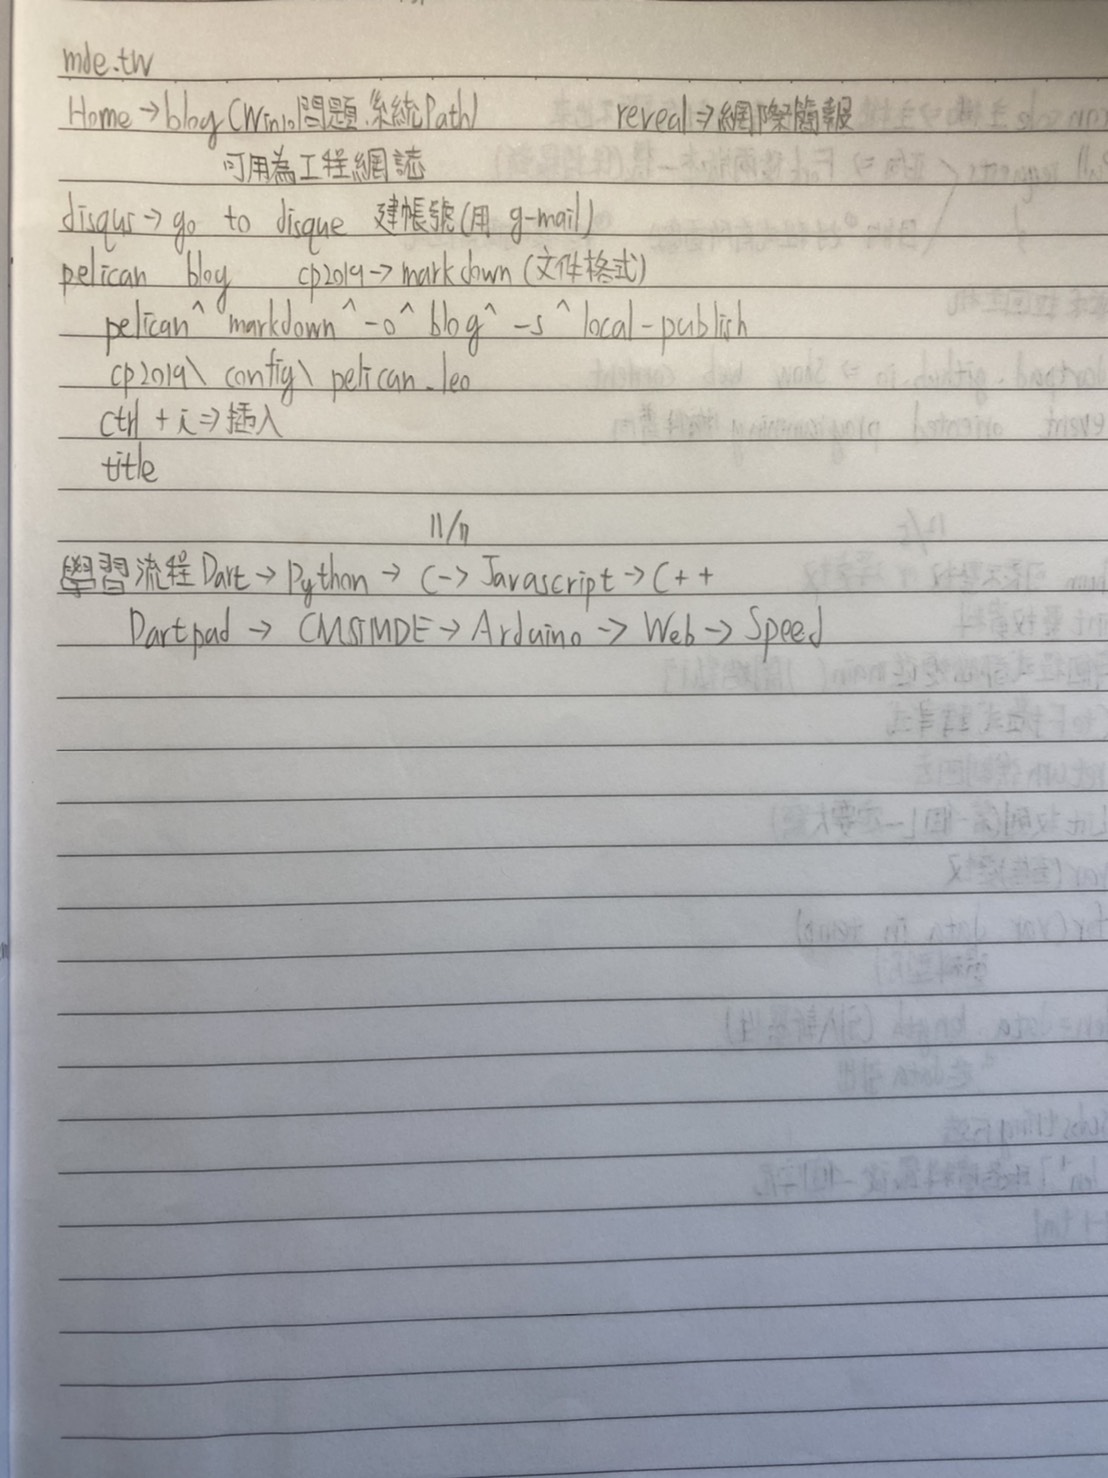 mde.tw
Home→blog (Win10問題.系統Path) reveal⇒網際簡報
可用為工程網誌
disqus→go to disque 建帳號(用 g-mail)
pelican blog cp2019→markdown (文件格式)
pelican^ markdown^-o^ blog^ -s^ local-publish
cp2019\ config\ pelican.leo
ctrl + i⇒插入
title
11/
學習流程Dart→Python→C->Javascript→C++
Dartpad→ CMSiMDE→Arduino→Web→Speed